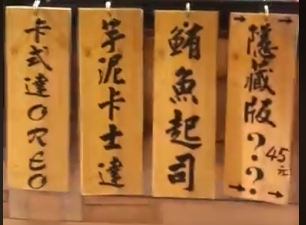 隱藏版??
45元
鮪魚起司
芋泥卡士達
卡式達OREO